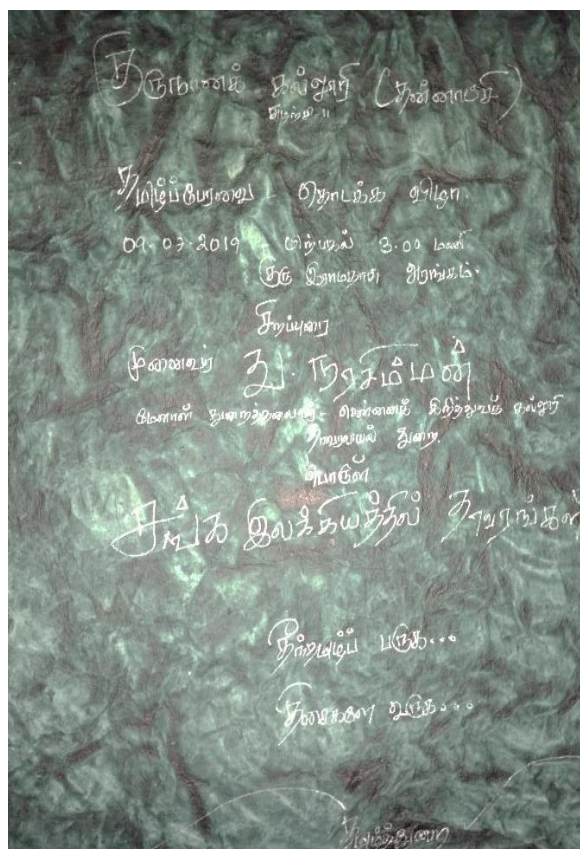 குருநானக் கல்லூரி (தன்னாட்சி)
சுழற்சி-II
தமிழ்ப்பேரவை - தொடக்க விழா.
09-07-2019 பிற்பகல் 3.00 மணி
குரு இராமதாசு அரங்கம்.
சிறப்புரை
முனைவர் து. நரசிம்மன்
மேனாள் துறைத்தலைவர், சென்னைக் கிறித்துவக் கல்லூரி
தாவரவியல் துறை
பொருள்
சங்க இலக்கியத்தில் தாவரங்கள்
தீந்தமிழ்ப் பருக...
திசைகளே வருக...
தமிழ்த்துறை